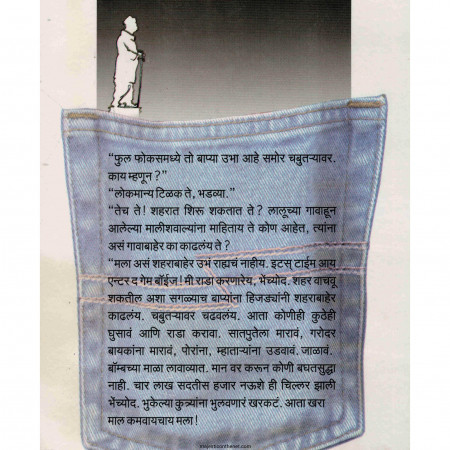 “फुल फोकसमध्ये तो बाप्या उभा आहे समोर चबुतऱ्यावर.
काय म्हणून ?”
“लोकमान्य टिळक ते, भडव्या.”
“तेच ते! शहरात शिरू शकतात ते ? लालूच्या गावाहून
आलेल्या मालीशवाल्यांना माहिताय ते कोण आहेत, त्यांना
असं गावाबाहेर का काढलंय ते ?
“मला असं शहराबाहेर उभं राह्यचं नाहीय. इटस् टाईम आय
एन्टर द गेम बॉईज! मी राडा करणारेय, भेंच्योद. शहर वाचवू
शकतील अशा सगळ्याच बाप्यांना हिजड्यांनी शहराबाहेर
काढलंय. चबुतऱ्यावर चढवलंय. आता कोणीही कुठेही
घुसावं आणि राडा करावा. सातपुतेला मारावं, गरोदर
बायकांना मारावं, पोरांना, म्हाताऱ्यांना उडवावं. जाळावं.
बॉम्बच्या माळा लावाव्यात. मान वर करून कोणी बघतसुद्धा
नाही. चार लाख सदतीस हजार नऊशे ही चिल्लर झाली
भेंच्योद. भुकेल्या कुत्र्यांना भुलवणारं खरकटं. आता खरा
माल कमवायचाय मला !